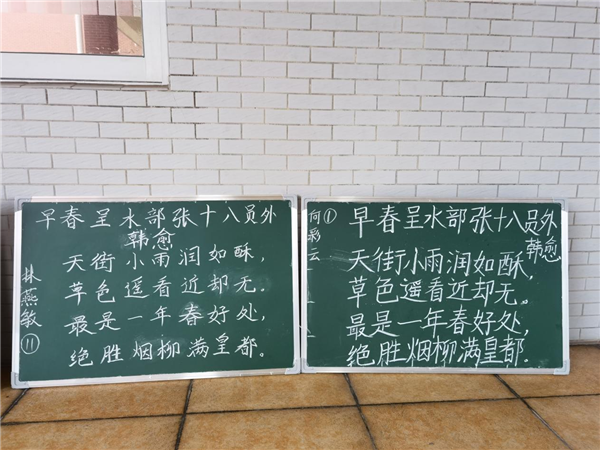 早春呈水部张十八员外
韩愈
天街小雨润如酥,
草色遥看近却无。
最是一年春好处,
绝胜烟柳满皇都。
林燕敏
11
早春呈水部张十八员外
韩愈
天街小雨润如酥,
草色遥看近却无。
最是一年春好处,
绝胜烟柳满皇都.
①
向彩云